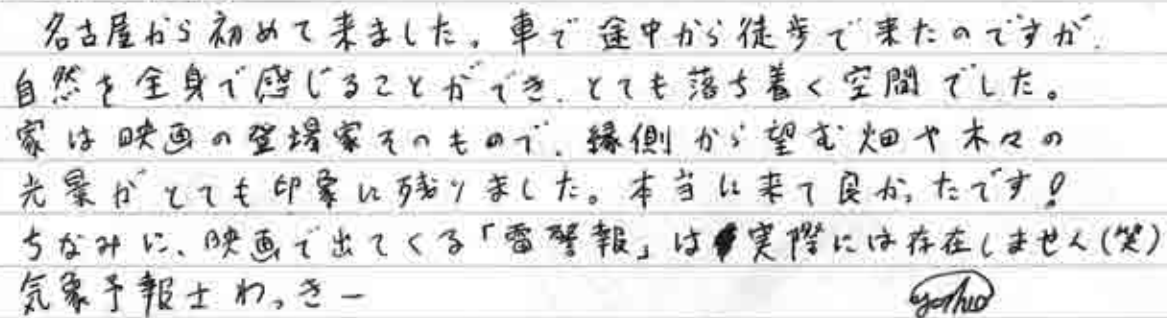 名古屋から初めて来ました。車で途中から徒歩で来たのですが、
自然を全身で感じることができ、とても落ち着く空間でした。
家は映画の登場家そのもので、縁側から望む畑や木々の
光景がとても印象に残りました。本当に来て良かったです!
ちなみに、映画で出てくる「雷警報」は実際には存在しません(笑)
気象予報士わっきー